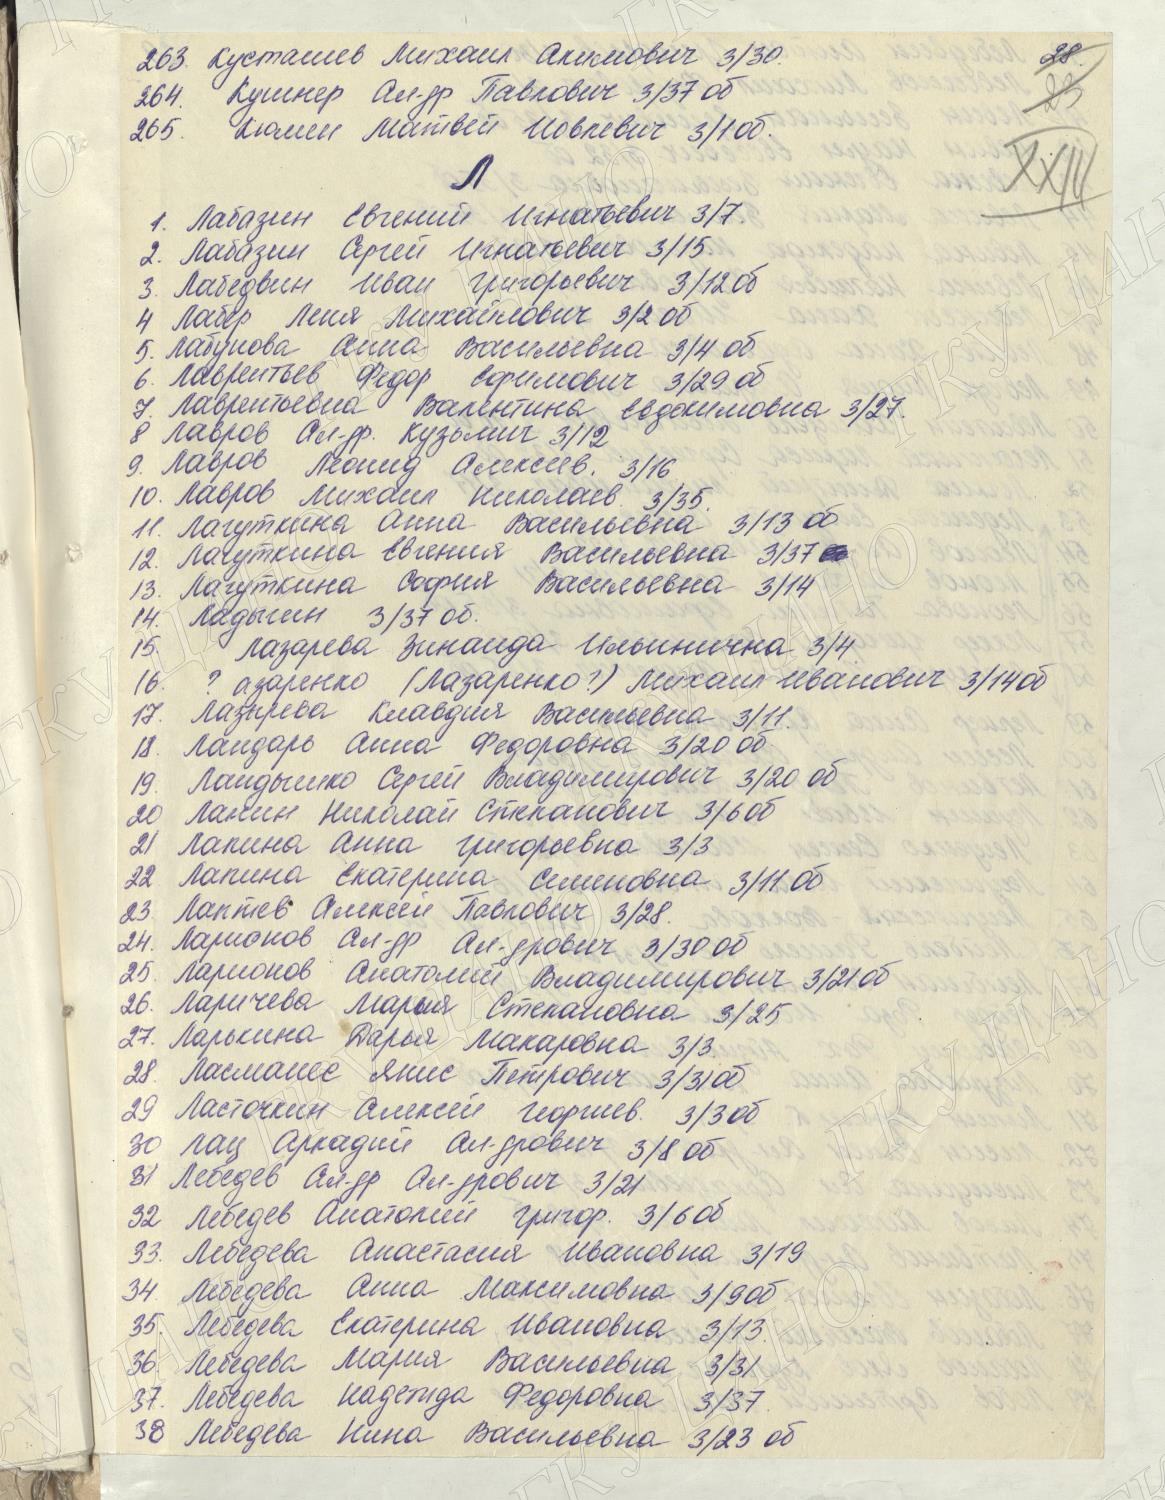 263. Кусташев Михаил Акимович 3/30.
28.
264. Кушнер Ал-др Павлович 3/37 об
23
265. Кюмин Матвей Иовлевич 3/1 об.
XXIII
Л
1. Лабазин Евгений Игнатьевич 3/7.
2. Лабазин Сергей Игнатьевич 3/15.
3. Лабедвин Иван Григорьевич 3/12 об
4 Лабер Леня Михайлович 3/2 об
5. Лабунова Анна Васильевна 3/4 об
6. Лаврентьев Федор Ефимович 3/29 об
7. Лаврентьевна Валентина Евдокимовна 3/27.
8 Лавров Ал-др. Кузьмич 3/12
9. Лавров Леонид Алексеев. 3/16
10. Лавров Михаил Николаев 3/35.
11. Лагуткина Анна Васильевна 3/13 об
12. Лагуткина Евгения Васильевна 3/37
13. Лагуткина София Васильевна 3/14
14. Ладыгин 3/37 об.
15. Лазарева Зинаида Ильинична 3/4.
16. ? азаренко (Лазаренко?) Михаил Иванович 3/14 об
17. Лазырева Клавдия Васильевна 3/11.
18. Ландарь Анна Федоровна 3/20 об
19. Ландышко Сергей Владимирович 3/20 об
20 Ланин Николай Степанович 3/6 об
21 Лапина Анна Григорьевна 3/3
22 Лапина Екатерина Семеновна 3/11 об
23. Лаптев Алексей Павлович 3/28.
24. Ларионов Ал-др Ал-дрович 3/30 об
25. Ларионов Анатолий Владимирович 3/21 об
26. Ларичева Мария Степановна 3/25
27. Ларькина Дарья Макаровна 3/3.
28. Ласманес Янис Петрович 3/31 об
29 Ласточкин Алексей Георгиев. 3/3 об
30 Лац Аркадий Ал-дрович 3/8 об
31 Лебедев Ал-др Ал-дрович 3/21
32 Лебедев Анатолий Григор. 3/6 об
33. Лебедева Анастасия Ивановна 3/19
34. Лебедева Анна Максимовна 3/9 об
35. Лебедева Екатерина Ивановна 3/13.
36. Лебедева Мария Васильевна 3/31
37. Лебедева Надежда Федоровна 3/37.
38 Лебедева Нина Васильевна 3/23 об
ГКУ ЦАНО